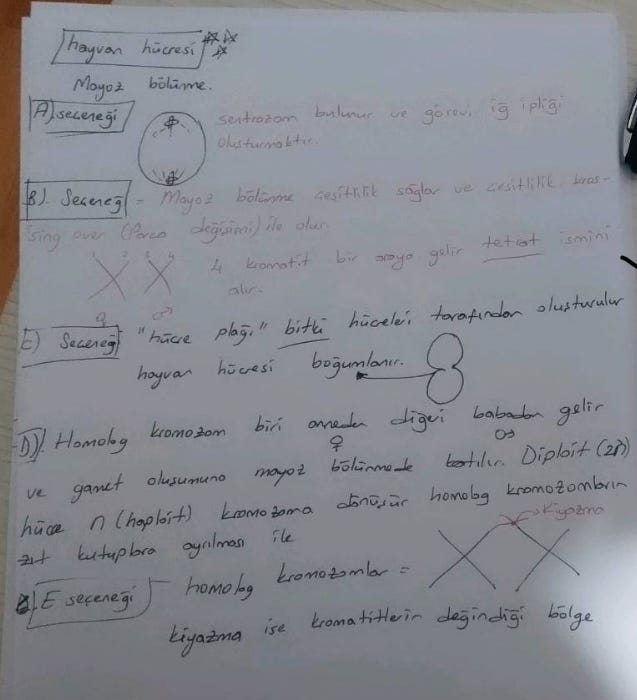 hayvan hücresi
Mayoz bölünme.
A) seçeneği
sentrozom bulunur ve görevi iğ ipliği
oluşturmaktır.
B). Seçeneği = Mayoz bölünme çeşitlilik sağlar ve çeşitlilik kros-
sing over (Parça değişimi) ile olur
1 2 3 4
4 kromotit bir araya gelir tetrat ismini
alır.
♀ ♂
E) Seçeneği "hücre plağı" bitki hücreleri tarafından oluşturulur
hayvan hücresi boğumlanır.
D). Homolog kromozom biri anneden diğeri babadan gelir
♀ ♂
ve gamet oluşumuna mayoz bölünmede katılır. Diploit (2n)
hücre n (haploit) kromozoma dönüşür homolog kromozomların
zıt kutuplara ayrılması ile
Kiyazma
E seçeneği homolog kromozomlar =
kiyazma ise kromatitlerin değindiği bölge